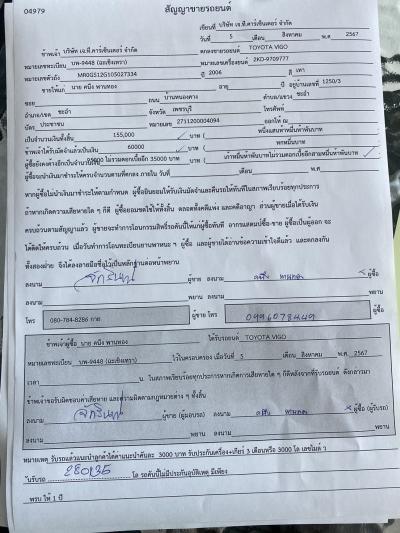 04979
สัญญาขายรถยนต์
เขียนที่ บริษัท เจ.ที.คาร์เซ็นเตอร์ จำกัด
วันที่ 5 เดือน สิงหาคม พ.ศ 2567
ข้าพเจ้า บริษัท เจ.ที.คาร์เซ็นเตอร์ จำกัด ตกลงขายรถยนต์ TOYOTA VIGO
หมายเลขทะเบียน บพ-9448 (ฉะเชิงเทรา) หมายเลขเครื่องยนต์ 2KD-9709777
หมายเลขตัวถัง MR0GS12G105027334 ปี 2006 สี เทา
ขายให้แก่ นาย คนึง พานทอง อายุ ปี อยู่บ้านเลขที่ 1250/3
ซอย ถนน บ้านหนองตาง ตำบล/แขวง ชะอำ
อำเภอ/เขต ชะอำ จังหวัด เพชรบุรี โทรศัพท์
บัตร ประชาชน หมายเลข 2711200004094 ออกให้ ณ
เป็นจำนวนเงินทั้งสิ้น 155,000 บาท ( หนึ่งแสนห้าหมื่นห้าพันบาท
ข้าพเจ้าได้รับมัดจำแล้วเป็นเงิน 60000 บาท ( หกหมื่นบาท
ผู้ซื้อยังคงค้างอีกเป็นจำนวนเงิน 95000 ไม่รวมดอกเบี้ยอีก 35000 บาท บาท ( เก้าหมื่นห้าพันบาทไม่รวมดอกเบี้ยอีกสามหมื่นห้าพันบาท
ผู้ซื้อจะนำเงินมาชำระให้ครบจำนวนตามที่ตกลง ภายใน วันที่ เดือน พ.ศ
หากผู้ซื้อไม่นำเงินมาชำระให้ตามกำหนด ผู้ซื้อยินยอมให้ริบเงินมัดจำและคืนรถให้ทันทีในสภาพเรียบร้อยทุกประการ
ถ้าหากเกิดความเสียหายใด ๆ ก็ดี ผู้ซื้อยอมชดใช้ให้ทั้งสิ้น ตลอดทั้งคดีแพ่ง และคดีอาญา ส่วนผู้ขายเมื่อได้รับเงิน
ครบถ้วนตามสัญญาแล้ว ผู้ขายจะทำการโอนกรรมสิทธิ์รถคันนี้ให้แก่ผู้ซื้อทันที อากรแสตมป์ซื้อ-ขาย ผู้ซื้อเป็นผู้ออก จะ
ได้คิดให้ครบถ้วน เมื่อวันทำการโอนทะเบียนยานพาหนะ ฯ ผู้ซื้อ และผู้ขายได้อ่านข้อความเข้าใจดีแล้ว และตกลงกัน
ทั้งสองฝ่าย จึงได้ลงลายมือชื่อไว้เป็นหลักฐานต่อหน้าพยาน
ลงนาม ผู้ขาย ลงนาม คนึง พานทอง ผู้ซื้อ
ลงนาม พยาน ลงนาม พยาน
โทร 080-784-8286 กาย ผู้ขาย โทร 0996078449 ผู้ซื้อ
ข้าพเจ้าผู้ซื้อ นาย คนึง พานทอง ได้รับรถยนต์ TOYOTA VIGO
หมายเลขทะเบียน บพ-9448 (ฉะเชิงเทรา) ไว้ในครอบครอง เมื่อวันที่ 5 เดือน สิงหาคม พ.ศ. 2567
เวลา น. ในสภาพเรียบร้อยทุกประการหากเกิดการเสียหายใด ๆ ก็ดีหลังจากที่รับรถยนต์ ดังกล่าวมา
ข้าพเจ้าขอรับผิดชอบค่าเสียหาย และความผิดตามกฎหมายต่าง ๆ ทั้งสิ้น
ลงนาม ผู้ขาย (ผู้มอบรถ) ลงนาม คนึง พานทอง ผู้ซื้อ (ผู้รับรถ)
ลงนาม พยาน ลงนาม พยาน
หมายเหตุ รับรถแล้วแนะนำลูกค้าได้ค่าแนะนำคันละ 3000 บาท รับประกันเครื่อง+เกียร์ 3 เดือนหรือ 3000 โล เลขไมล์ ว
วันรับรถ 280135 โล รถคันนี้ไม่มีประกันอุบัติเหตุ มีเพียง
พรบ ให้ 1 ปี